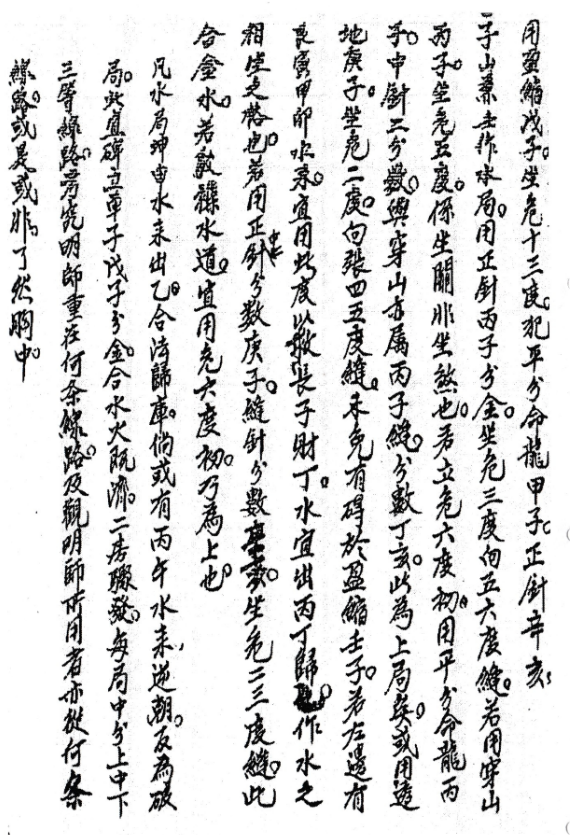 用盈縮戊子。坐危十三度。犯平分命龍甲子。正針辛亥。
子山兼壬作水局。用正針丙子分金。坐危三度向五六度縫。若用穿山
丙子。坐危五度。係坐關非坐煞也。若立危六度初。用平分命龍丙
子。中針二分數與穿山亦屬丙子縫。分數丁亥。此為上局矣。或用透
地庚子。坐危二度。向張四五度縫。未免有碍於盈縮壬子。若左邊有
艮寅甲卯水來。宜用此度以撥長子財丁。水宜出丙丁歸作水之
相生之格也。若用正針中針分數庚子。縫針分數坐危二三度縫。此
合金水。若欲襍水道。宜用危六度初。乃為上也。
凡水局坤申水來出乙。合法歸庫。倘或有丙午水來。逆朝。反為破
局。此宜碑立單子戊子分金。合水火既濟。二房驟發。每局中分上中下
三等線路。旁究明師重在何条線路。及觀明師所用者亦從何条
線路。或是或非。了然胸中。